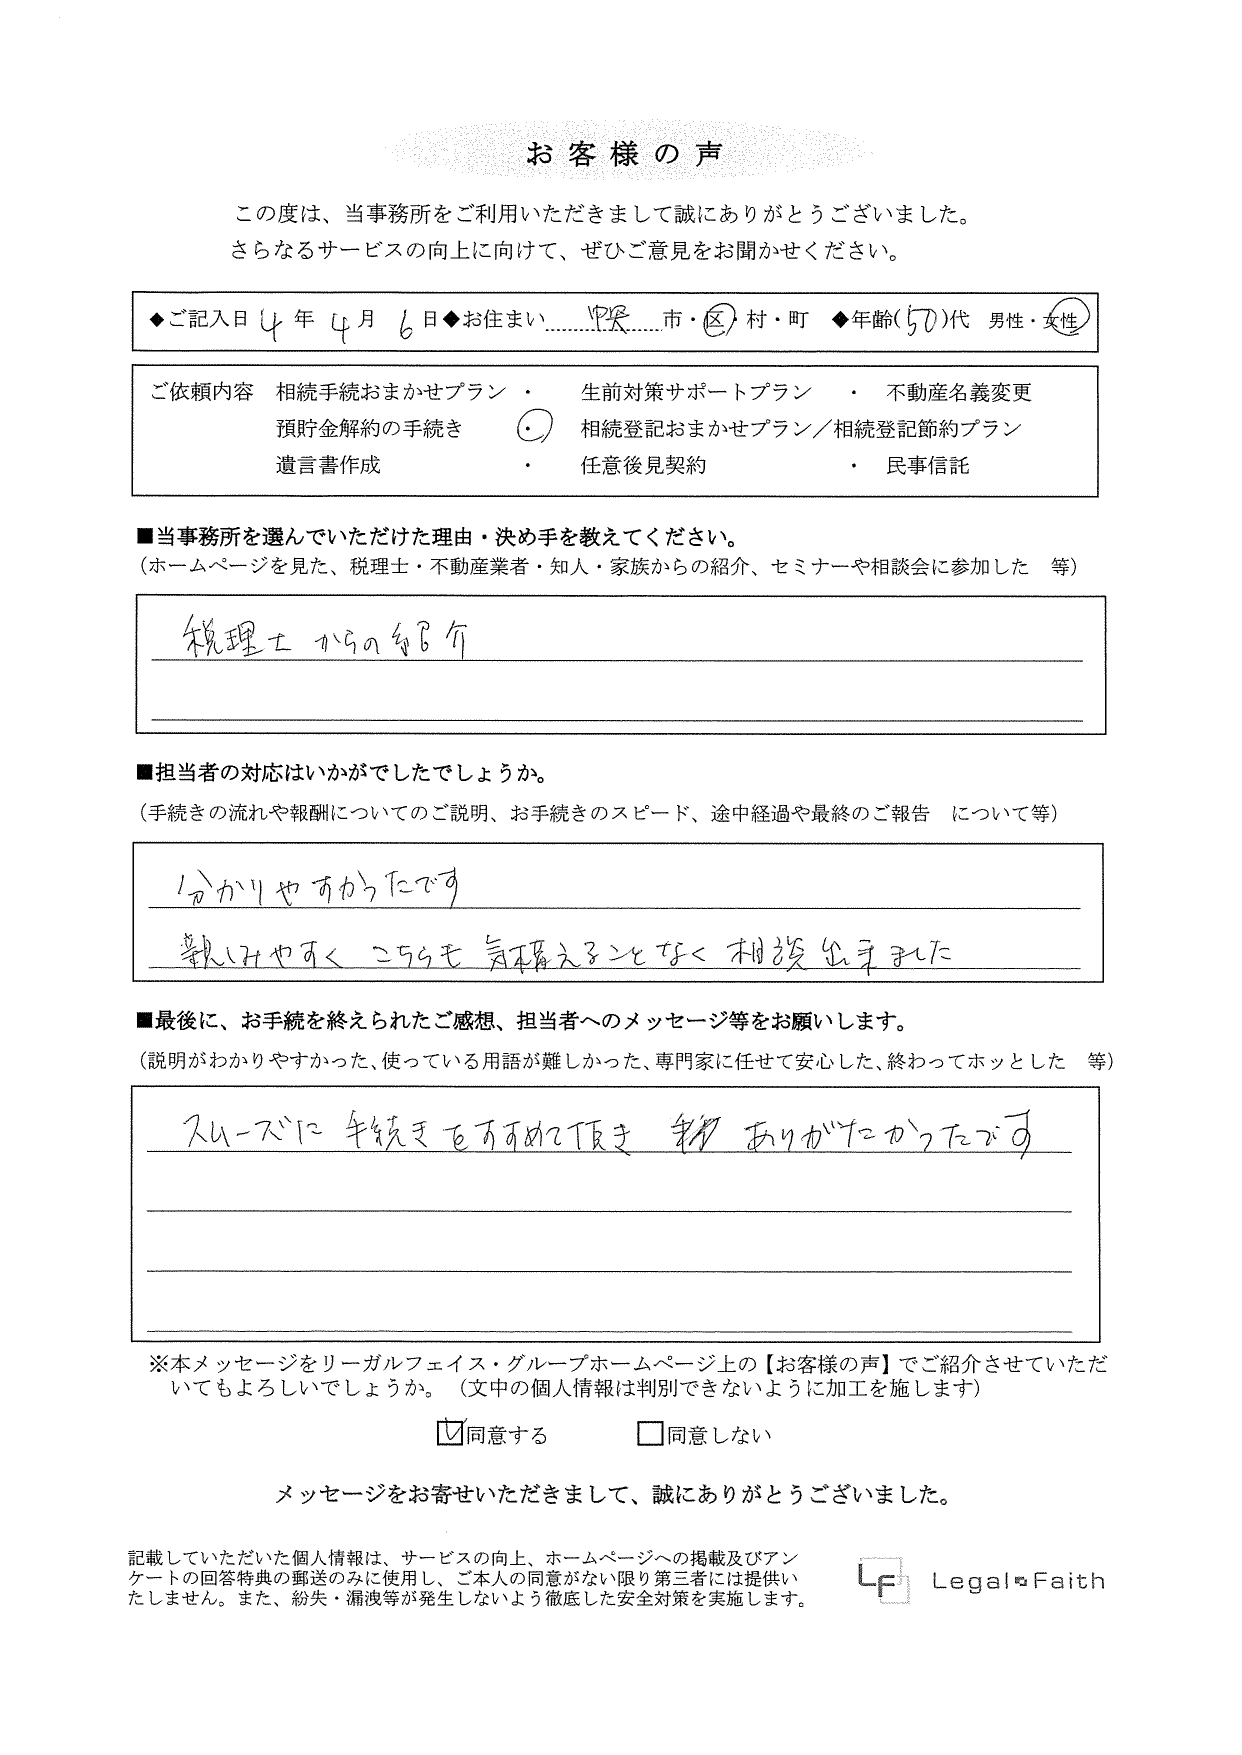 お客様の声
この度は、当事務所をご利用いただきまして誠にありがとうございました。
さらなるサービスの向上に向けて、ぜひご意見をお聞かせください。
◆ご記入日 4 年 4 月 6 日◆お住まい 中央 市・区・村・町 ◆年齢(50)代 男性・女性
ご依頼内容 相続手続おまかせプラン ・ 生前対策サポートプラン ・ 不動産名義変更
預貯金解約の手続き ・ 相続登記おまかせプラン／相続登記節約プラン
遺言書作成 ・ 任意後見契約 ・ 民事信託
■当事務所を選んでいただけた理由・決め手を教えてください。
（ホームページを見た、税理士・不動産業者・知人・家族からの紹介、セミナーや相談会に参加した 等）
税理士からの紹介
■担当者の対応はいかがでしたでしょうか。
（手続きの流れや報酬についてのご説明、お手続きのスピード、途中経過や最終のご報告 について等）
分かりやすかったです
親しみやすく こちらも 気構えることなく 相談出来ました
■最後に、お手続を終えられたご感想、担当者へのメッセージ等をお願いします。
（説明がわかりやすかった、使っている用語が難しかった、専門家に任せて安心した、終わってホッとした 等）
スムーズに 手続きをすすめて頂き ありがたかったです
※本メッセージをリーガルフェイス・グループホームページ上の【お客様の声】でご紹介させていただ
いてもよろしいでしょうか。（文中の個人情報は判別できないように加工を施します）
☑同意する □同意しない
メッセージをお寄せいただきまして、誠にありがとうございました。
記載していただいた個人情報は、サービスの向上、ホームページへの掲載及びアン
ケートの回答特典の郵送のみに使用し、ご本人の同意がない限り第三者には提供い
たしません。また、紛失・漏洩等が発生しないよう徹底した安全対策を実施します。
LF Legal Faith